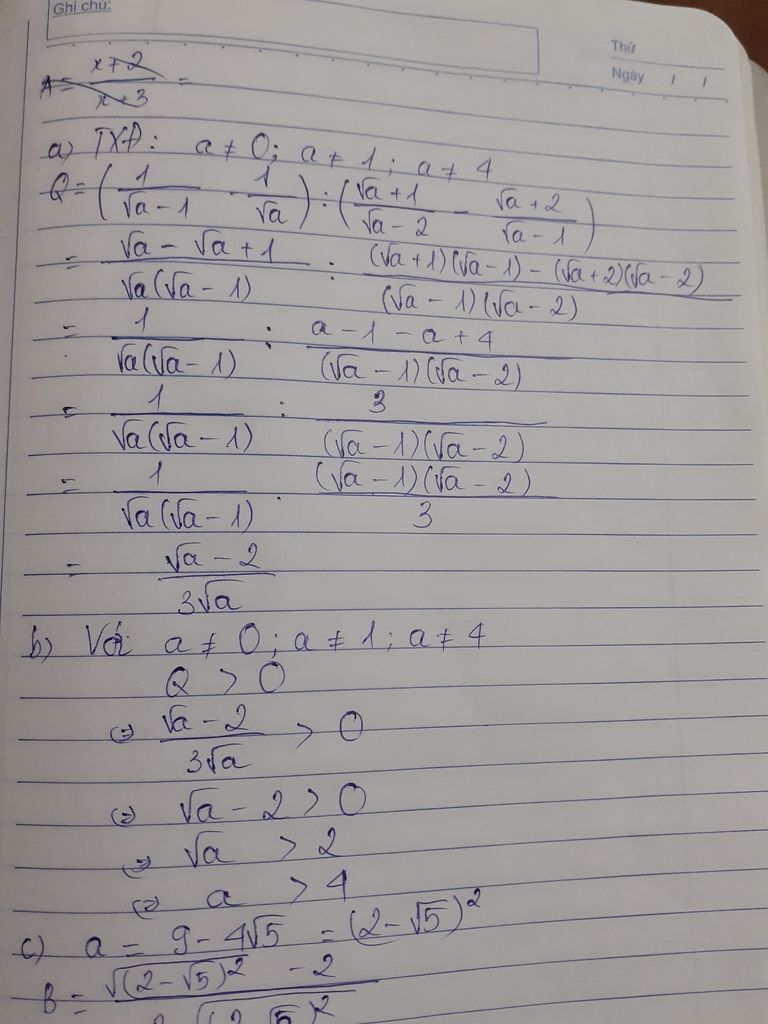 Ghi chú:
Thứ
Ngày / /
A = x+2 / x+3 =
a) TXĐ: a ≠ 0; a ≠ 1; a ≠ 4
Q = (1/(√a - 1) - 1/√a) : ((√a + 1)/(√a - 2) - (√a + 2)/(√a - 1))
= (√a - √a + 1)/(√a(√a - 1)) : ((√a + 1)(√a - 1) - (√a + 2)(√a - 2))/((√a - 1)(√a - 2))
= 1/(√a(√a - 1)) : (a - 1 - a + 4)/((√a - 1)(√a - 2))
= 1/(√a(√a - 1)) : 3/((√a - 1)(√a - 2))
= 1/(√a(√a - 1)) . ((√a - 1)(√a - 2))/3
= (√a - 2)/(3√a)
b) Với a ≠ 0; a ≠ 1; a ≠ 4
Q > 0
⇔ (√a - 2)/(3√a) > 0
⇔ √a - 2 > 0
⇔ √a > 2
⇔ a > 4
c) a = 9 - 4√5 = (2 - √5)²
B = √(2 - √5)² - 2